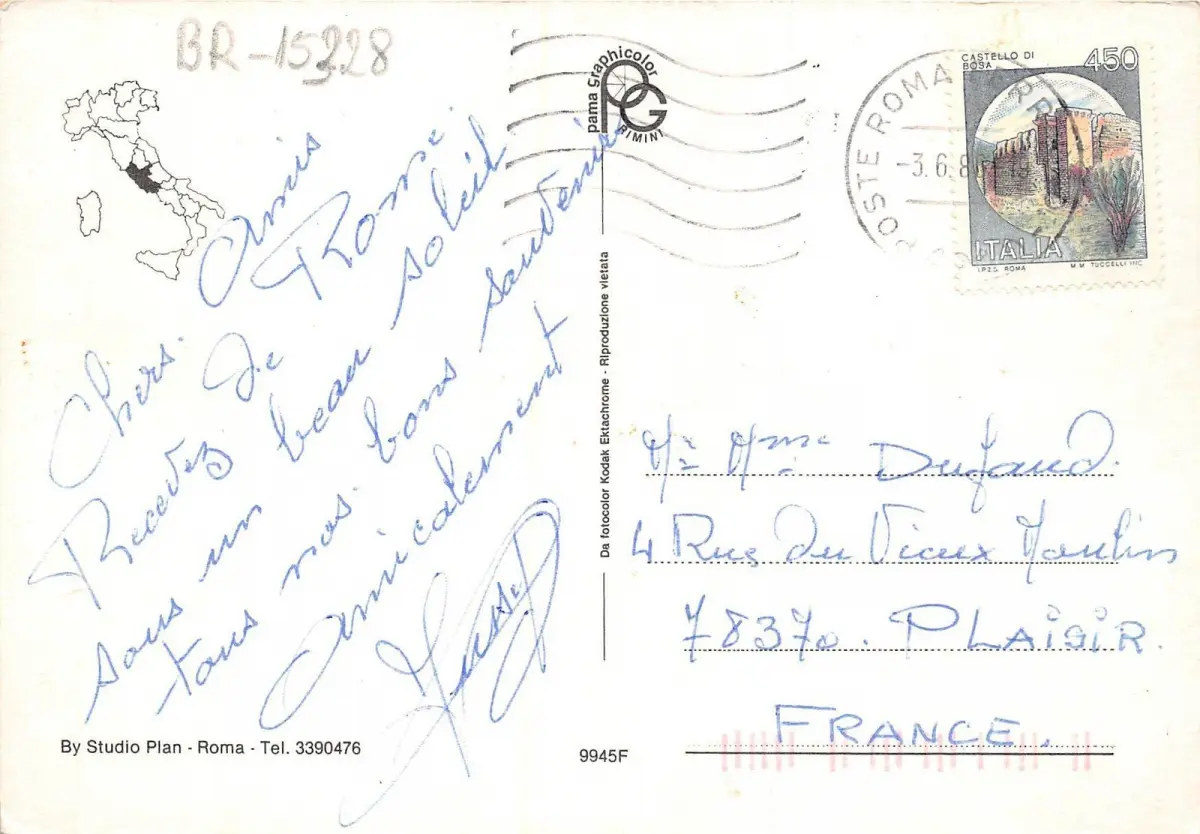 BR-15228
pama graphicolor
PG
RIMINI
POSTE ROMA
-3.6.8
CASTELLO DI
BOSA
450
ITALIA
I.P.Z.S. ROMA
M.M. TUCCELLI INC.
Chers. Amis
Recevez De Rome
sous un beau soleil
tous nos. bons souvenirs
Amicalement
Da fotocolor Kodak Ektachrome - Riproduzione vietata
Mr Mme Dufaud.
4 Rue Du Vieux Moulin
78370. PLAISIR.
FRANCE.
By Studio Plan - Roma - Tel. 3390476
9945F